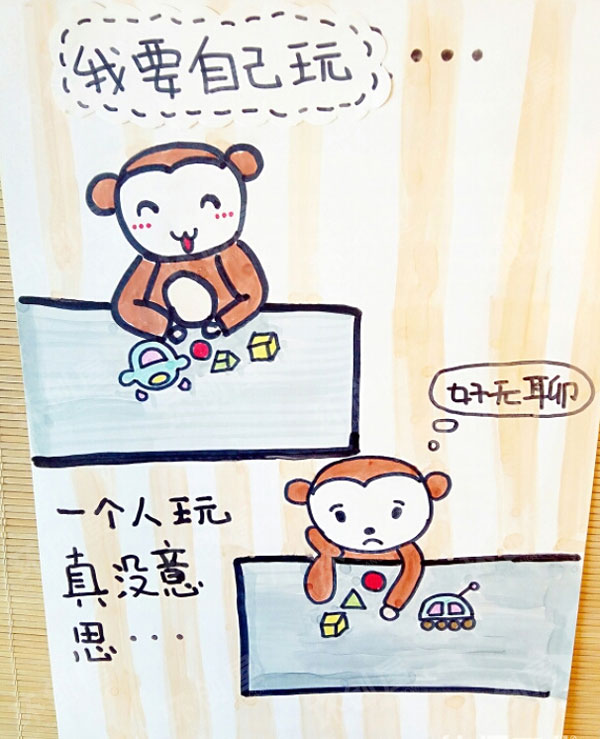 我要自己玩...
好无聊
一个人玩
真没意
思...